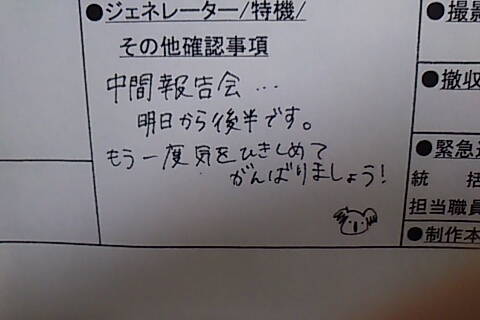 ●ジェネレーター/特機/
その他確認事項
中間報告会…
明日から後半です。
もう一度気をひきしめて
がんばりましょう!
●撮影
●撤収
●緊急連
統 括
担当職員
●制作本